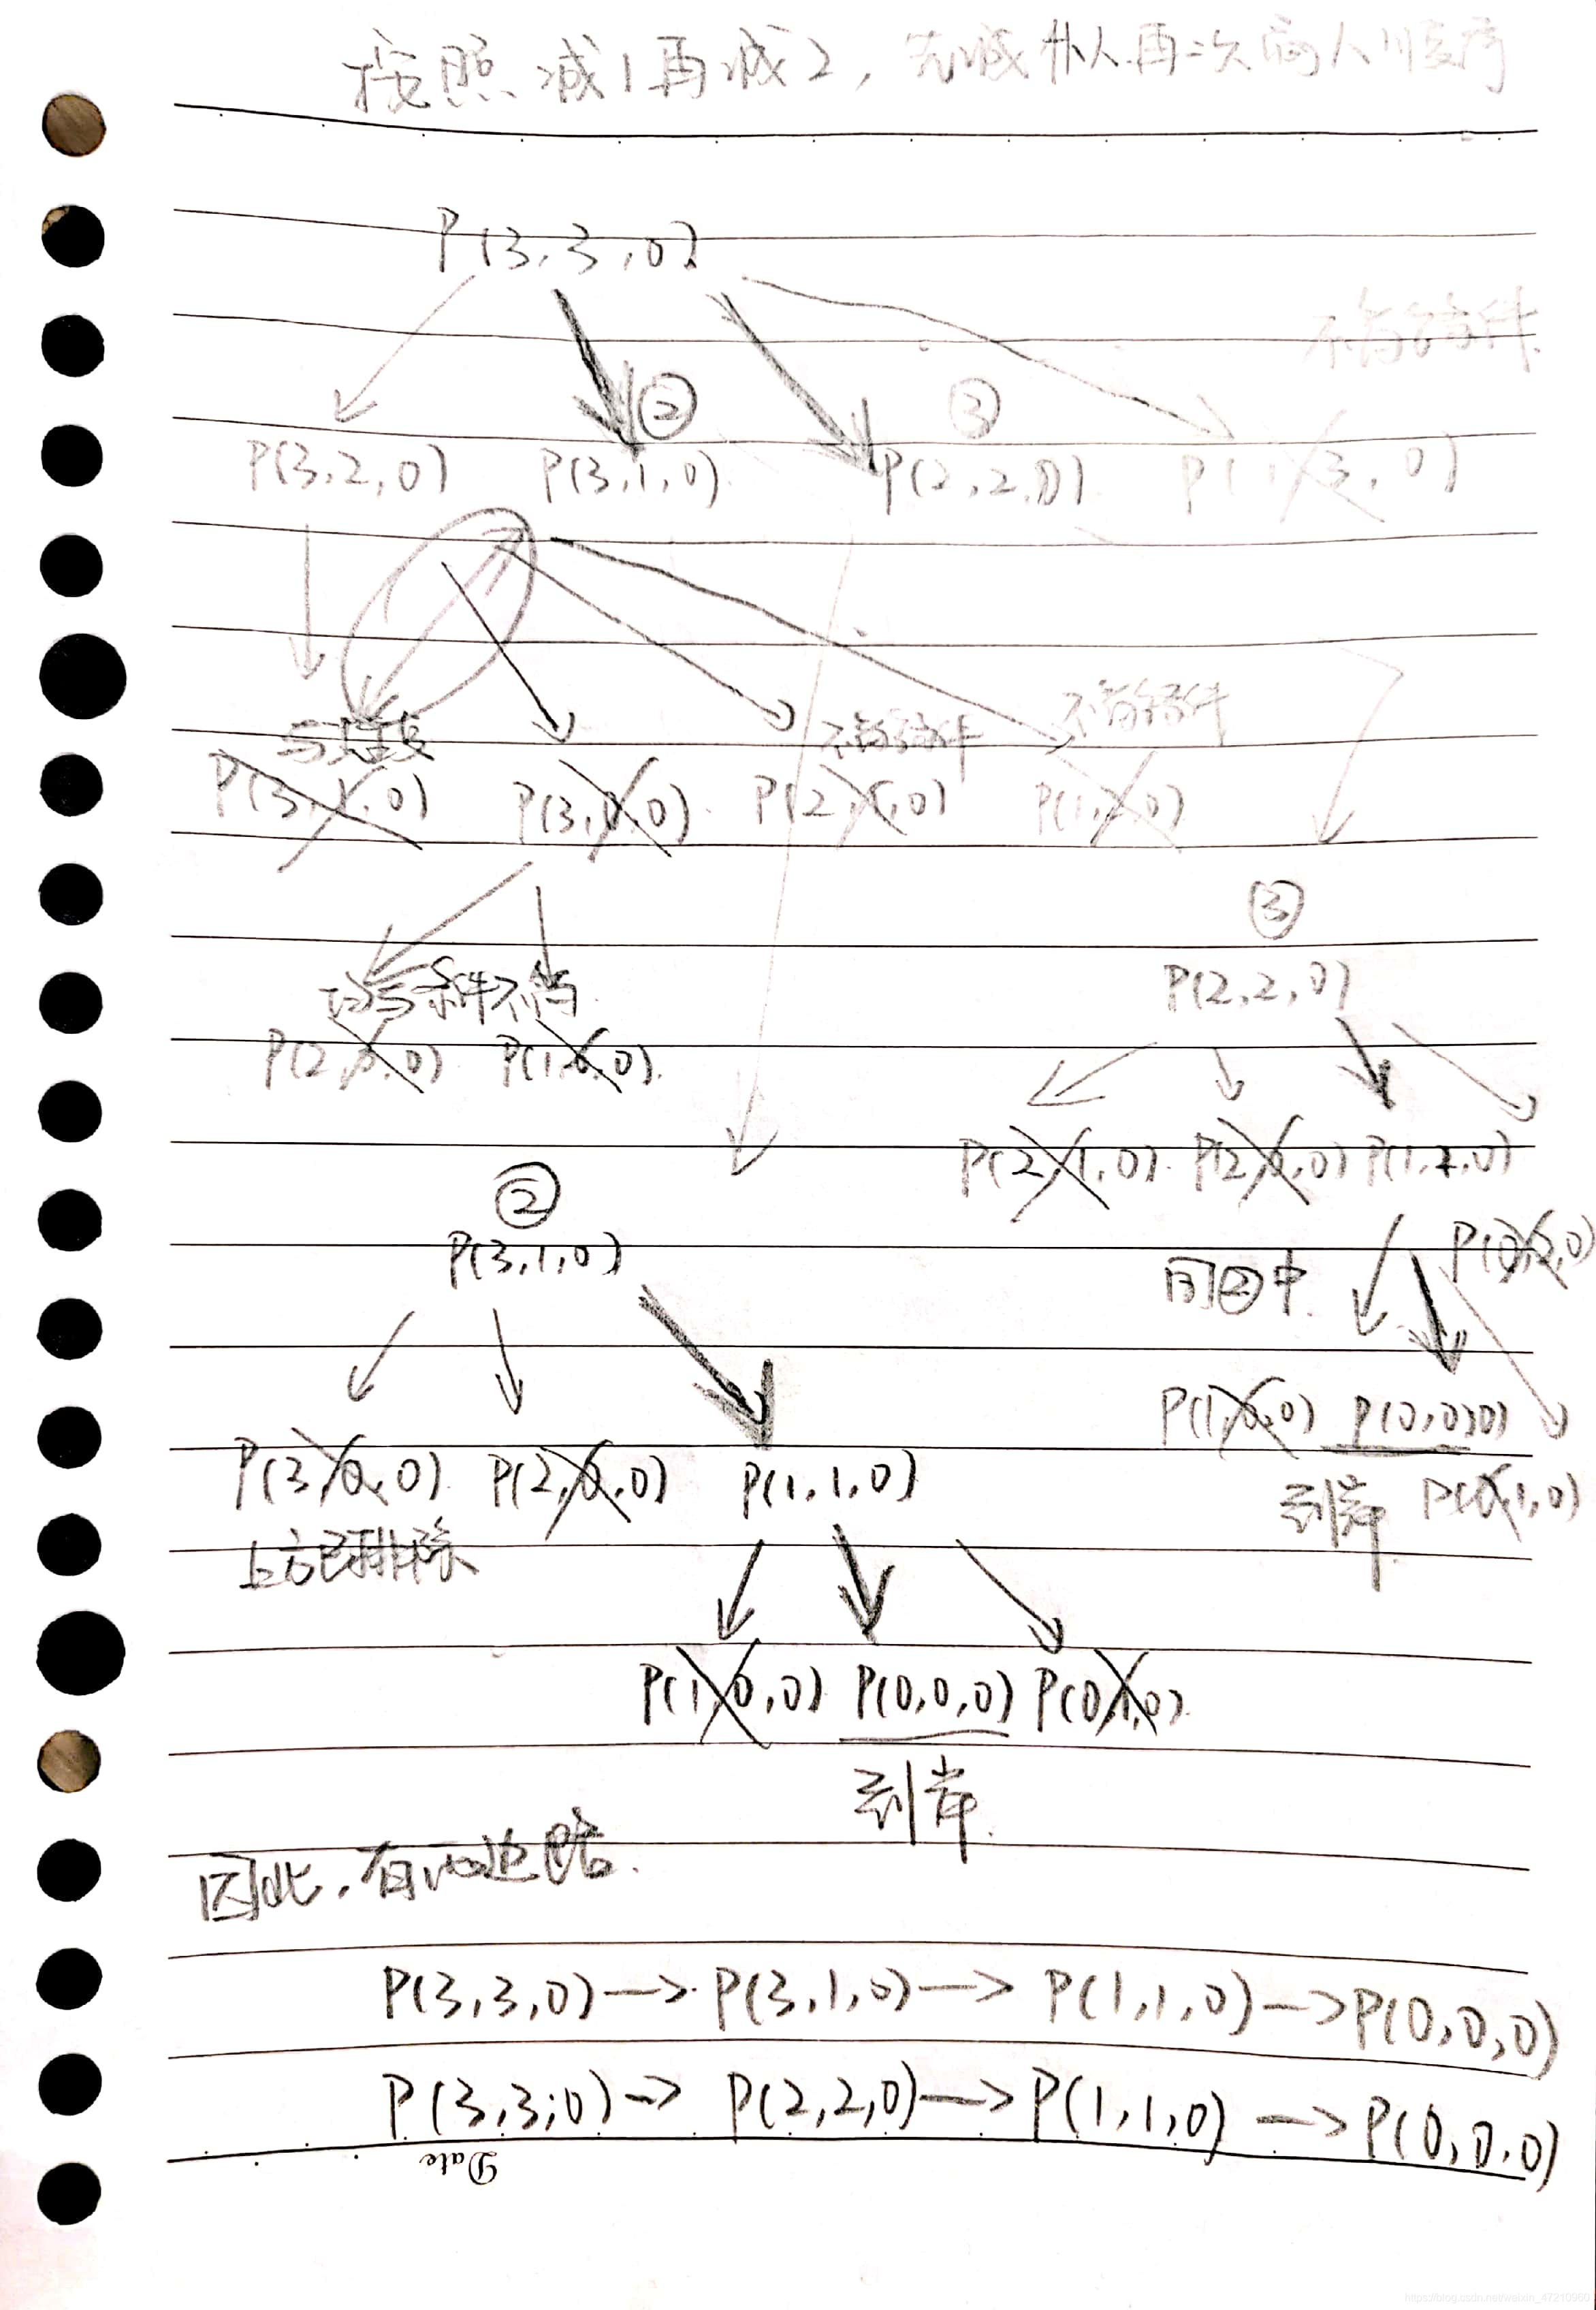 按照减1再减2，先减仆人再次商人顺序
P(3,3,0)
不符合条件
② ③
P(3,2,0) P(3,1,0) P(2,2,0) P(1,3,0)
与②重复 不符合条件 不符合条件
P(3,1,0) P(3,0,0) P(2,1,0) P(1,2,0)
③
条件不符
P(2,2,0)
P(2,0,0) P(1,0,0)
P(2,1,0) P(2,0,0) P(1,1,0)
②
P(3,1,0)
P(0,2,0)
同②中
P(1,0,0) P(0,0,0)
P(3,0,0) P(2,0,0) P(1,1,0)
到岸 P(0,1,0)
上方已排除
P(1,0,0) P(0,0,0) P(0,1,0)
到岸
因此，有两边路.
P(3,3,0)→P(3,1,0)→P(1,1,0)→P(0,0,0)
P(3,3,0)→P(2,2,0)→P(1,1,0)→P(0,0,0)
Date